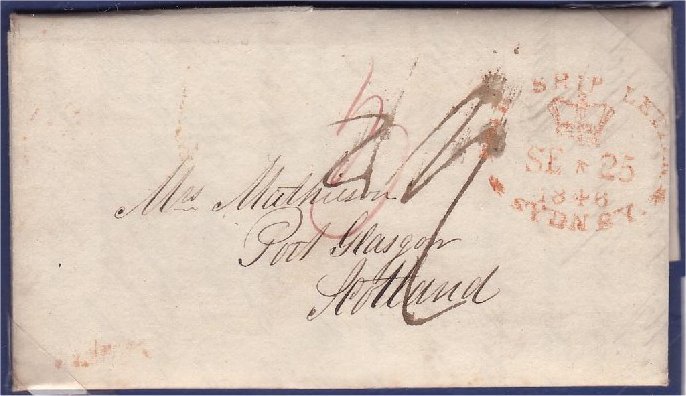 SHIP LETTER
SE ★ 25
1846
SYDNEY
Mrs Mathieson
Port Glasgow
Scotland